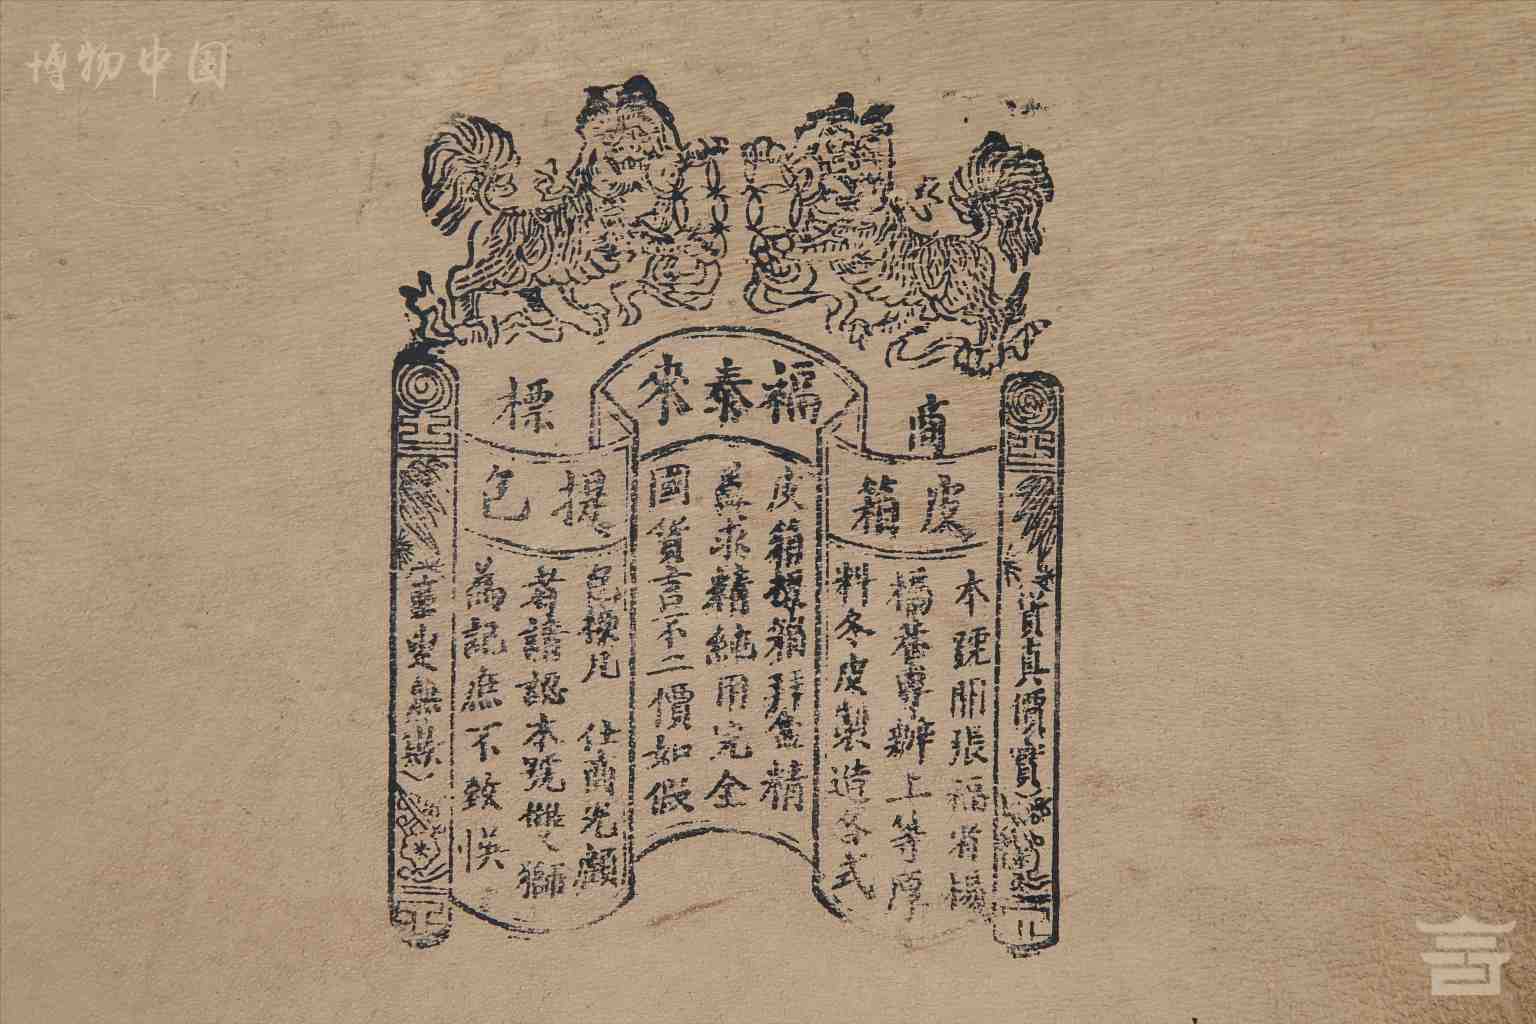 博物中国
福泰來
商標
皮箱
提包
貨真價實
本號開張福省楊
橋巷專辦上等厚
料冬皮製造各式
皮箱標箱拜盒精
益求精純用完全
國貨言不二價如假
包換凡 仕商光顧
者請認本號雙獅
為記庶不致悞
童叟無欺